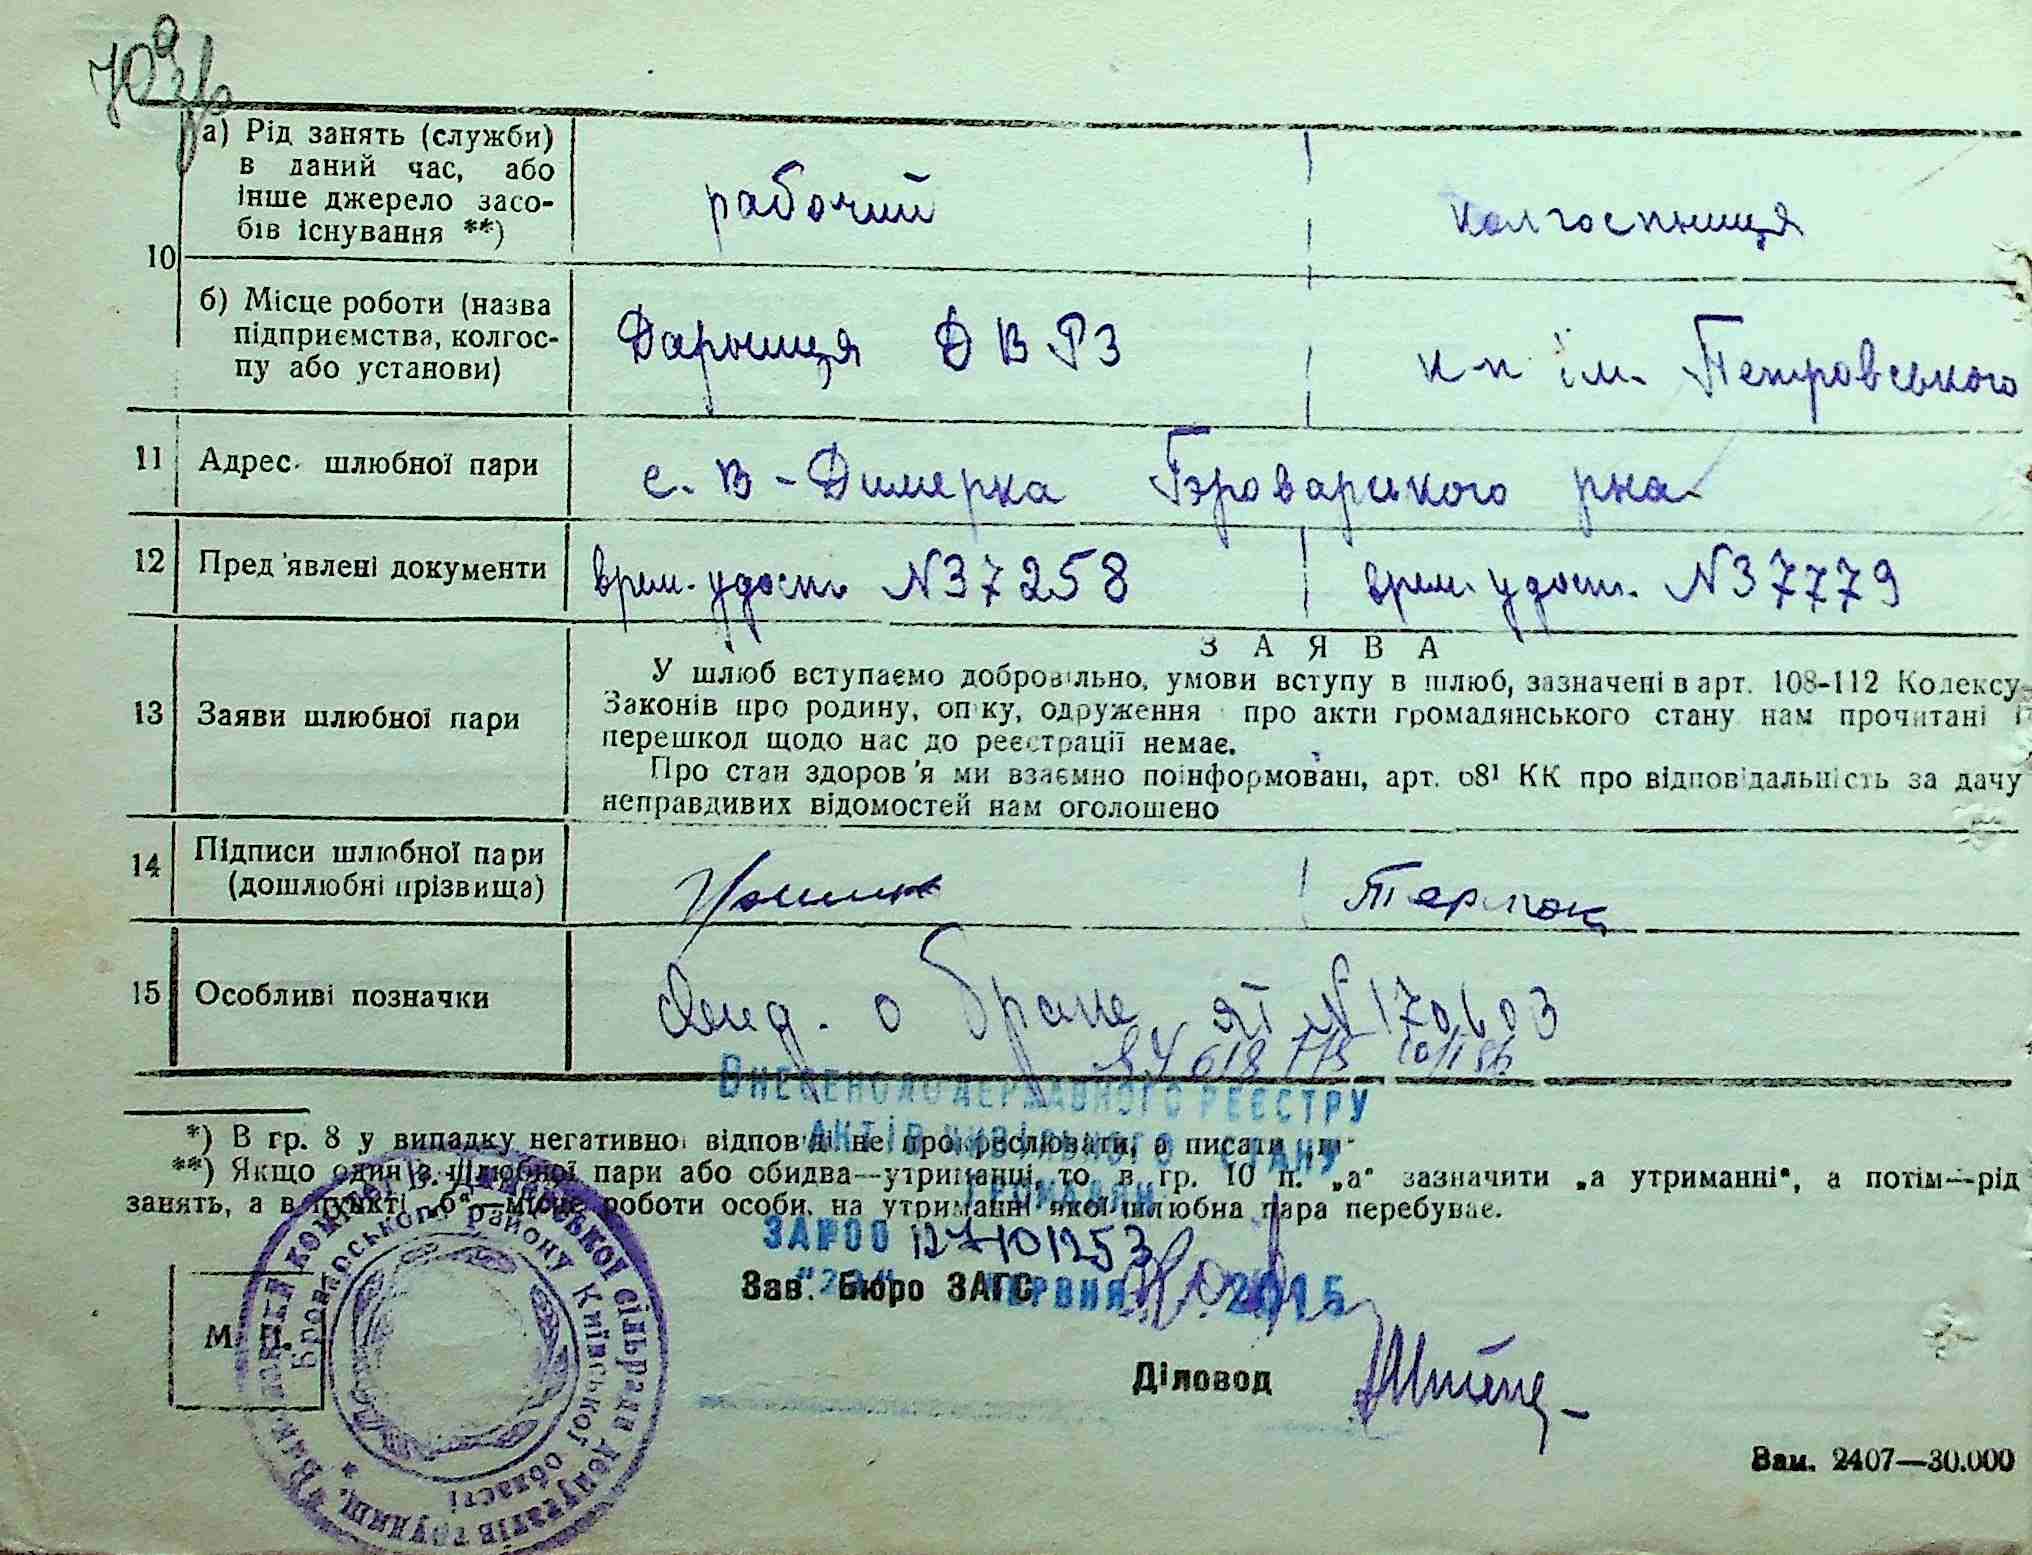 а) Рід занять (служби)
в даний час, або
інше джерело засо-
бів існування **)
рабочий
колгоспниця
10
б) Місце роботи (назва
підприємства, колгос-
пу або установи)
Дарниця ДВРЗ
к-п ім. Петровського
11 Адрес шлюбної пари
с. В-Димерка Броварського р-на
12 Пред'явлені документи
врем. удост. №37258
врем. удост. №37779
13 Заяви шлюбної пари
ЗАЯВА
У шлюб вступаємо добровільно, умови вступу в шлюб, зазначені в арт. 108-112 Кодексу
Законів про родину, опіку, одруження про акти громадянського стану нам прочитані і
перешкод щодо нас до реєстрації немає.
Про стан здоров'я ми взаємно поінформовані, арт. 68¹ КК про відповідальність за дачу
неправдивих відомостей нам оголошено
14 Підписи шлюбної пари
(дошлюбні прізвища)
15 Особливі позначки
о браке ЯТ №170603
ВНЕСЕНО ДО ДЕРЖАВНОГО РЕЄСТРУ
АКТІВ ЦИВІЛЬНОГО СТАНУ
ГРОМАДЯН
*) В гр. 8 у випадку негативної відповіді не прокреслювати, а писати „ні“
**) Якщо один з шлюбної пари або обидва—утриманці, то в гр. 10 п. „а“ зазначити „а утриманні“, а потім—рід
занять, а в пункті „б“—місце роботи особи, на утриманні якої шлюбна пара перебуває.
ЗА №00
Зав. Бюро ЗАГС
ЧЕРВНЯ 2015
М. П.
Діловод
Виконавчий комітет В. Димерської сільради депутатів трудящ.
Броварського району Київської області
Зам. 2407—30.000